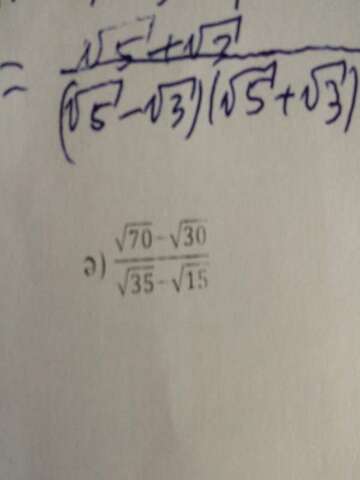 = (√5 + √3) / ((√5 - √3)(√5 + √3))
ə) (√70 - √30) / (√35 - √15)